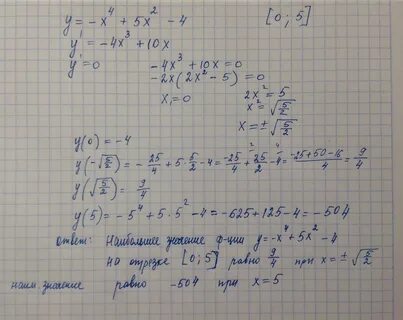 y = -x⁴ + 5x² - 4 [0; 5]
y' = -4x³ + 10x
y' = 0 -4x³ + 10x = 0
-2x(2x² - 5) = 0
x₁ = 0 2x² = 5
x² = √(5/2)
x = ±√(5/2)
y(0) = -4
y(-√(5/2)) = -25/4 + 5·5/2 - 4 = -25/4 + 25/2 - 4 = (-25+50-16)/4 = 9/4
y(√(5/2)) = 9/4
y(5) = -5⁴ + 5·5² - 4 = -625 + 125 - 4 = -504
ответ: Наибольшее значение ф-ции y = -x⁴ + 5x² - 4
на отрезке [0; 5] равно 9/4 при x = ±√(5/2)
наим. значение равно -504 при x = 5